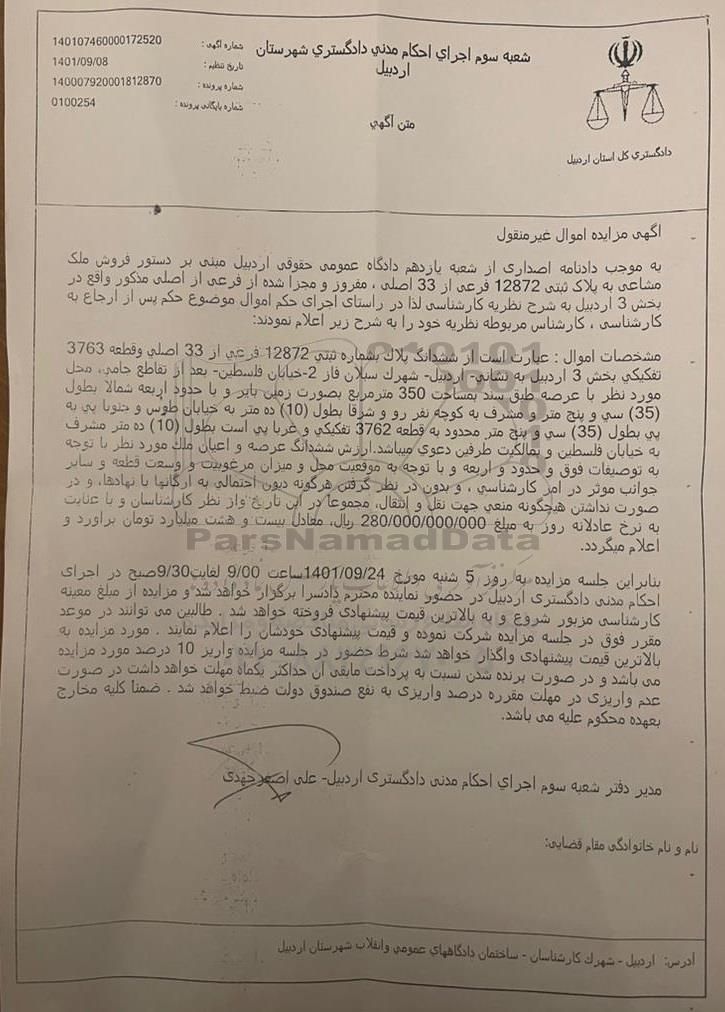 شماره آگهي : 14010746000172520
تاريخ تنظيم : 1401/09/08
شماره پرونده : 140007920001812870
شماره بايگاني پرونده : 0100254
شعبه سوم اجراي احكام مدني دادگستري شهرستان
اردبيل
متن آگهي
دادگستري كل استان اردبيل
آگهی مزایده اموال غیرمنقول
به موجب دادنامه اصداری از شعبه یازدهم دادگاه عمومی حقوقی اردبیل مبنی بر دستور فروش ملک
مشاعی به پلاک ثبتی 12872 فرعی از 33 اصلی ، مفروز و مجزا شده از فرعی از اصلی مذکور واقع در
بخش 3 اردبیل به شرح نظریه کارشناسی لذا در راستای اجرای حکم اموال موضوع حکم پس از ارجاع به
کارشناسی ، کارشناس مربوطه نظریه خود را به شرح زیر اعلام نمودند:
مشخصات اموال : عبارت است از ششدانگ پلاك بشماره ثبتي 12872 فرعي از 33 اصلي وقطعه 3763
تفكيكي بخش 3 اردبيل به نشاني- اردبيل- شهرك سبلان فاز 2-خيابان فلسطين- بعد از تقاطع خامي، محل
مورد نظر با عرصه طبق سند بمساحت 350 مترمربع بصورت زمين باير و با حدود اربعه شمالا بطول
(35) سي و پنج متر و مشرف به كوچه نفر رو و شرقا بطول (10) ده متر به خيابان طوس و جنوبا پي به
پي بطول (35) سي و پنج متر محدود به قطعه 3762 تفكيكي و غربا پي است بطول (10) ده متر مشرف
به خيابان فلسطين و بمالكيت طرفين دعوي ميباشد.ارزش ششدانگ عرصه و اعيان ملك مورد نظر با توجه
به توصيفات فوق و حدود و اربعه و با توجه به موقعيت محل و ميزان مرغوبيت و وسعت قطعه و ساير
جوانب موثر در امر كارشناسي ، و بدون در نظر گرفتن هرگونه ديون احتمالي به ارگانها يا نهادها، و در
صورت نداشتن هيچگونه منعي جهت نقل و انتقال، مجموعاً در اين تاريخ واز نظر كارشناسان و با عنايت
به نرخ عادلانه روز به مبلغ 280/000/000/000 ريال، معادل بيست و هشت ميليارد تومان برآورد و
اعلام ميگردد.
ParsNamadData
بنابراین جلسه مزایده به روز 5 شنبه مورخ 1401/09/24ساعت 9/00 لغایت9/30صبح در اجرای
احکام مدنی دادگستری اردبیل در حضور نماینده محترم دادسرا برگزار خواهد شد و مزایده از مبلغ معینه
کارشناسی مزبور شروع و به بالاترین قیمت پیشنهادی فروخته خواهد شد . طالبین می توانند در موعد
مقرر فوق در جلسه مزایده شرکت نموده و قیمت پیشنهادی خودشان را اعلام نمایند . مورد مزایده به
بالاترین قیمت پیشنهادی واگذار خواهد شد شرط حضور در جلسه مزایده واریز 10 درصد مورد مزایده
می باشد و در صورت برنده شدن نسبت به پرداخت مابقی آن حداکثر یکماه مهلت خواهد داشت در صورت
عدم واریزی در مهلت مقرره درصد واریزی به نفع صندوق دولت ضبط خواهد شد . ضمنأ کلیه مخارج
بعهده محکوم علیه می باشد.
مدیر دفتر شعبه سوم اجراي احكام مدنی دادگستری اردبیل- علی اصغرجهدی
نام و نام خانوادگی مقام قضایی:
آدرس: اردبيل - شهرك كارشناسان - ساختمان دادگاههاي عمومي وانقلاب شهرستان اردبيل